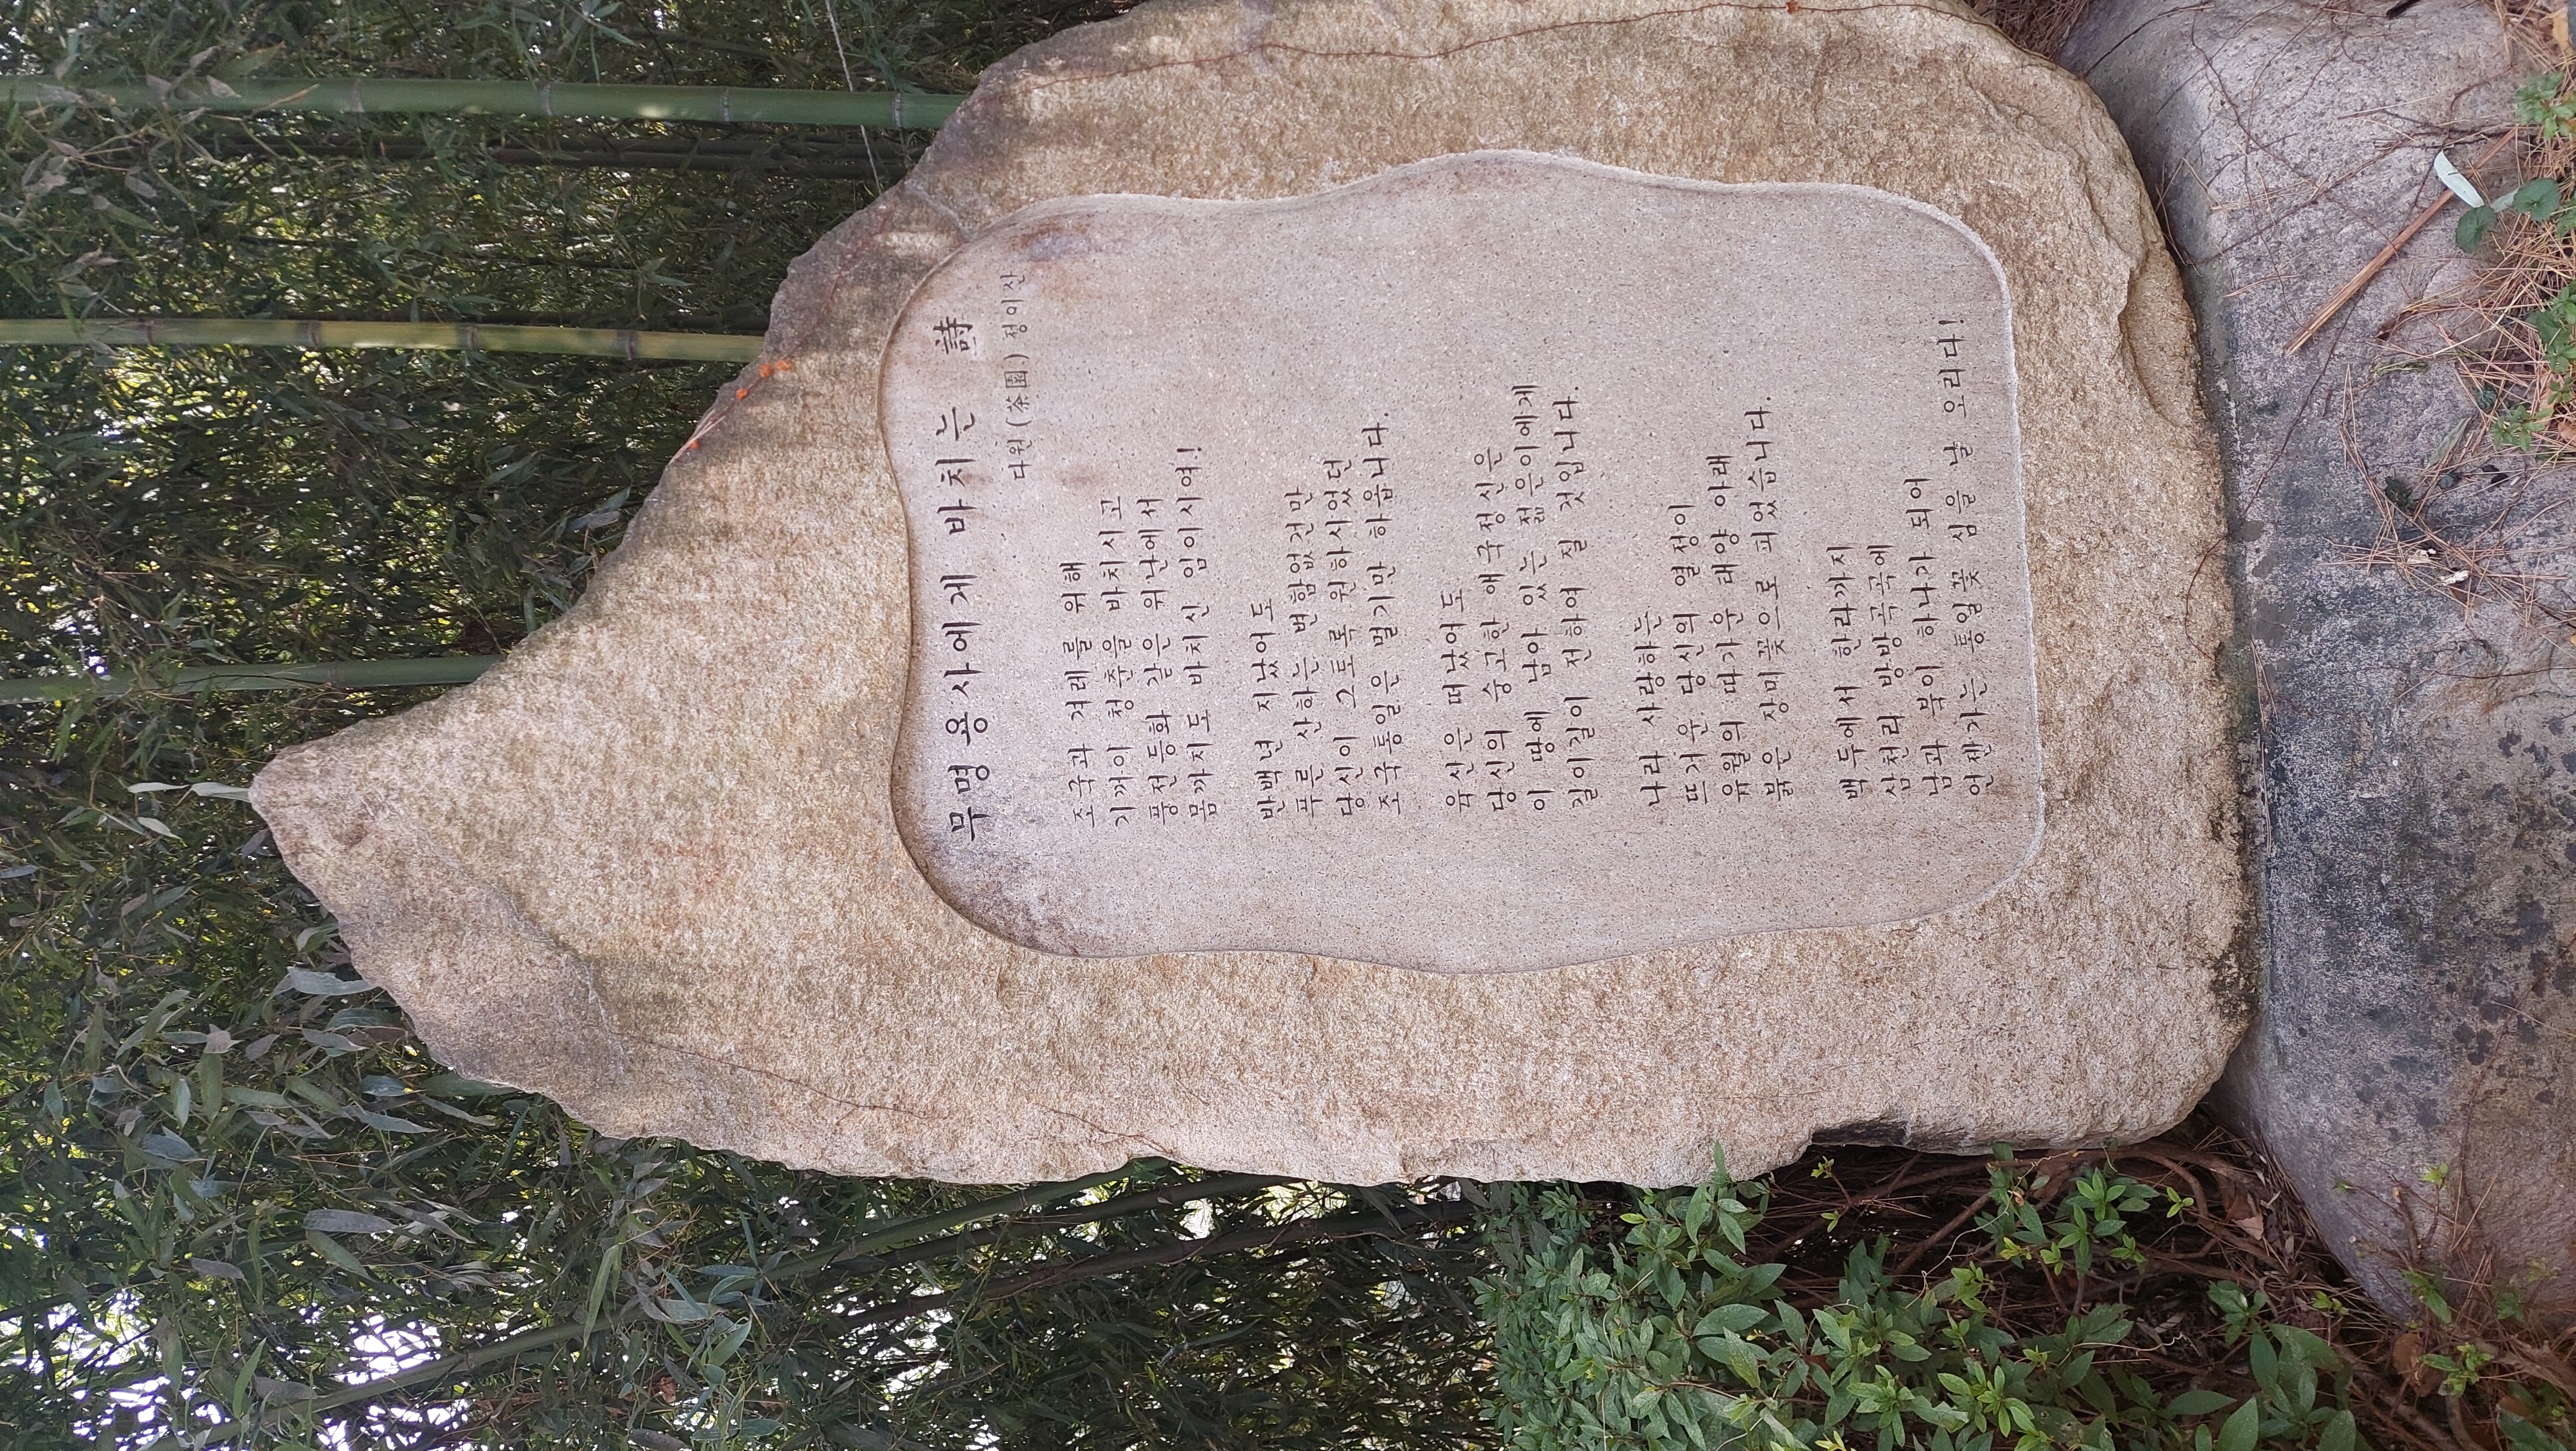 무명 용사에게 바치는 詩
다원(茶園) 정이산
조국과 겨레를 위해
기꺼이 청춘을 바치시고
풍전등화 같은 위난에서
몸까지도 바치신 임이시여!
반백년 지났어도
푸른 산하는 변함없건만
당신이 그토록 원하시었던
조국통일은 멀기만 하옵니다.
육신은 떠났어도
당신의 숭고한 애국정신은
이 땅에 남아 있는 젊은이에게
길이길이 전하여 질 것입니다.
나라 사랑하는
뜨거운 당신의 열정이
유월의 따가운 태양 아래
붉은 장미꽃으로 피었습니다.
백두에서 한라까지
삼천리 방방곡곡에
남과 북이 하나가 되어
언젠가는 통일꽃 심을 날 오리다!